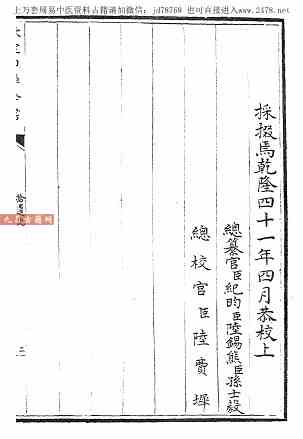 上万套周易中医资料古籍请加微信：jd78769 也可直接进入www.2478.net
採掇焉乾隆四十一年四月恭校上
總纂官臣紀昀臣陸錫熊臣孫士毅
總校官臣陸費墀